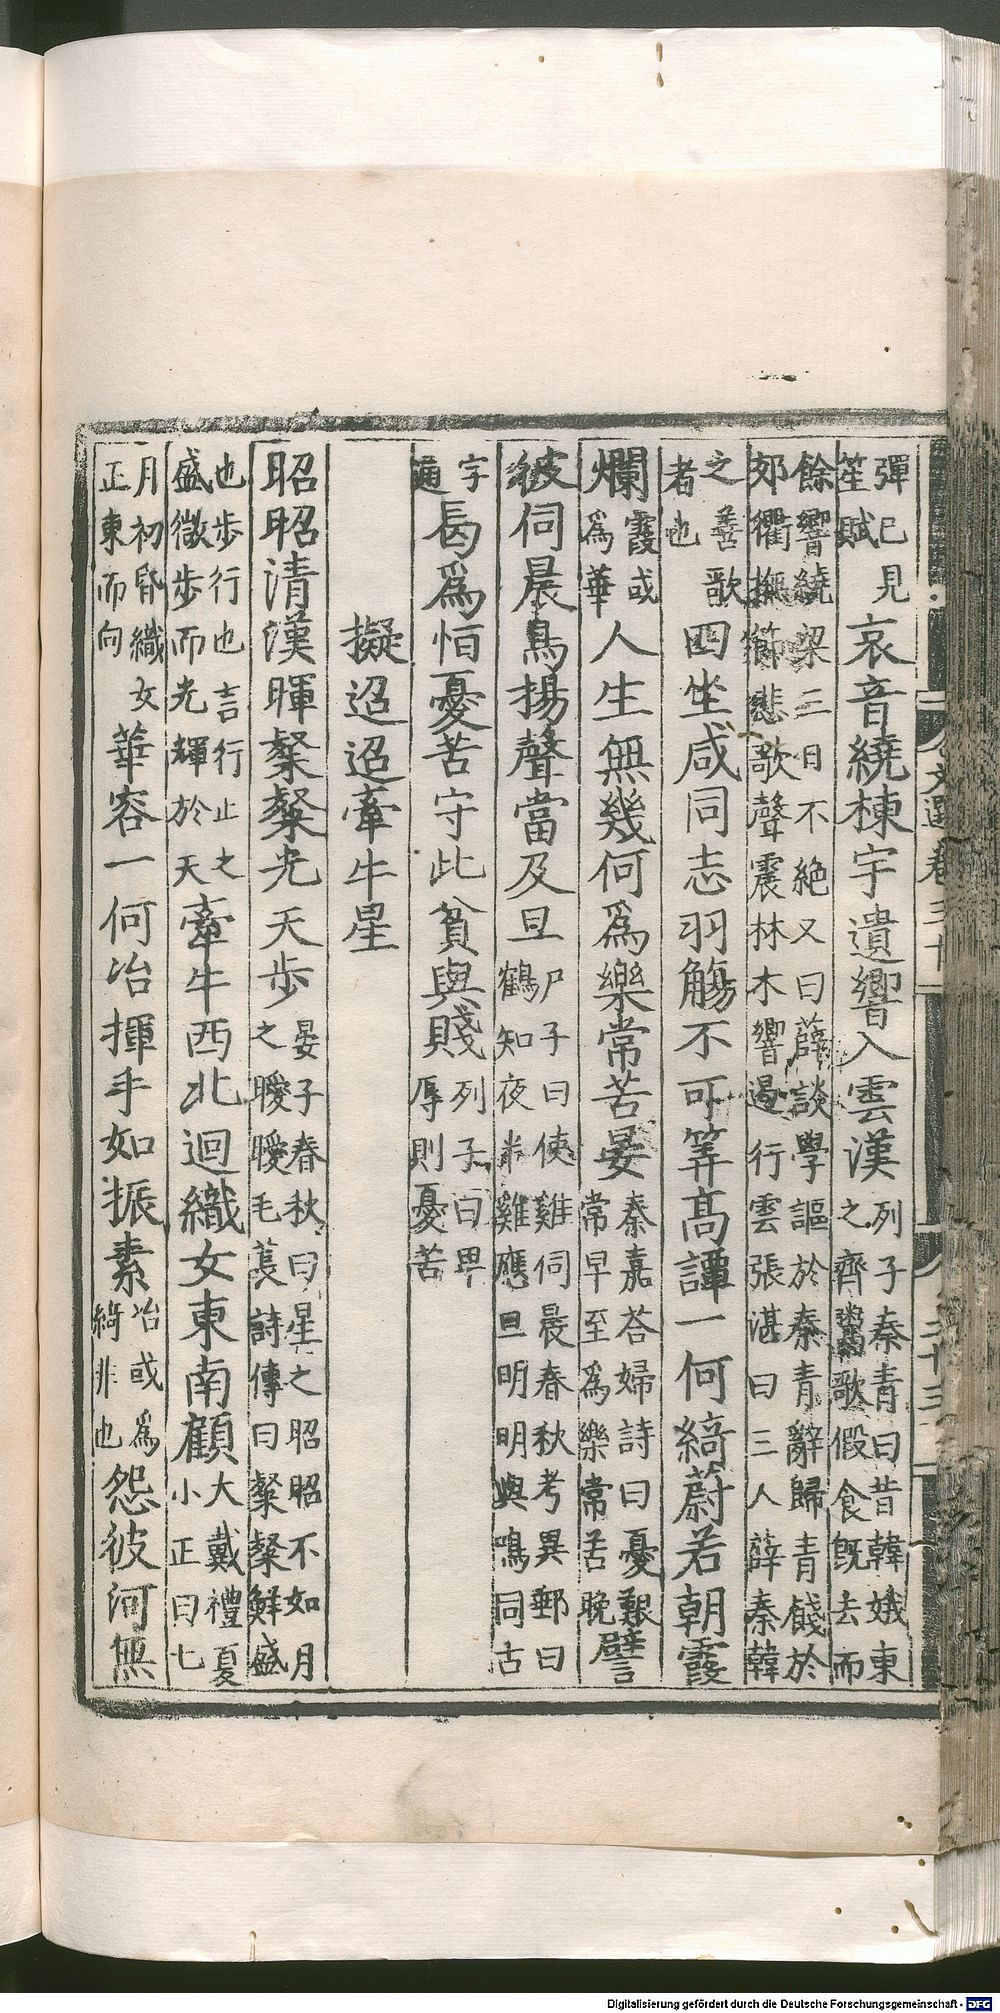 彈已見笙賦哀音繞棟宇遺響入雲漢列子秦青曰昔韓娥東之齊鬻歌假食既去而
餘響繞梁三日不絶又曰薛談學謳於秦青辭歸青餞於郊衢撫節悲歌聲震林木響遏行雲張湛曰三人薛秦韓
之善歌者也四坐咸同志羽觴不可筭高譚一何綺蔚若朝霞
爛霞或為華人生無幾何為樂常苦晏秦嘉荅婦詩曰憂艱常早至為樂常苦晚譬
彼伺晨鳥揚聲當及旦尸子曰使雞伺晨春秋考異郵曰鶴知夜半雞應旦明明與鳴同古
字通曷為恒憂苦守此貧與賤列子曰卑辱則憂苦
擬迢迢牽牛星
昭昭清漢暉粲粲光天步晏子春秋曰星之昭昭不如月之曖曖毛萇詩傳曰粲粲鮮盛
也步行也言行止之盛微步而光輝於天牽牛西北迴織女東南顧大戴禮夏小正曰七
月初昏織女正東而向華容一何冶揮手如振素冶或為綺非也怨彼河無
文選卷三十
二十三
Digitalisierung gefördert durch die Deutsche Forschungsgemeinschaft - DFG